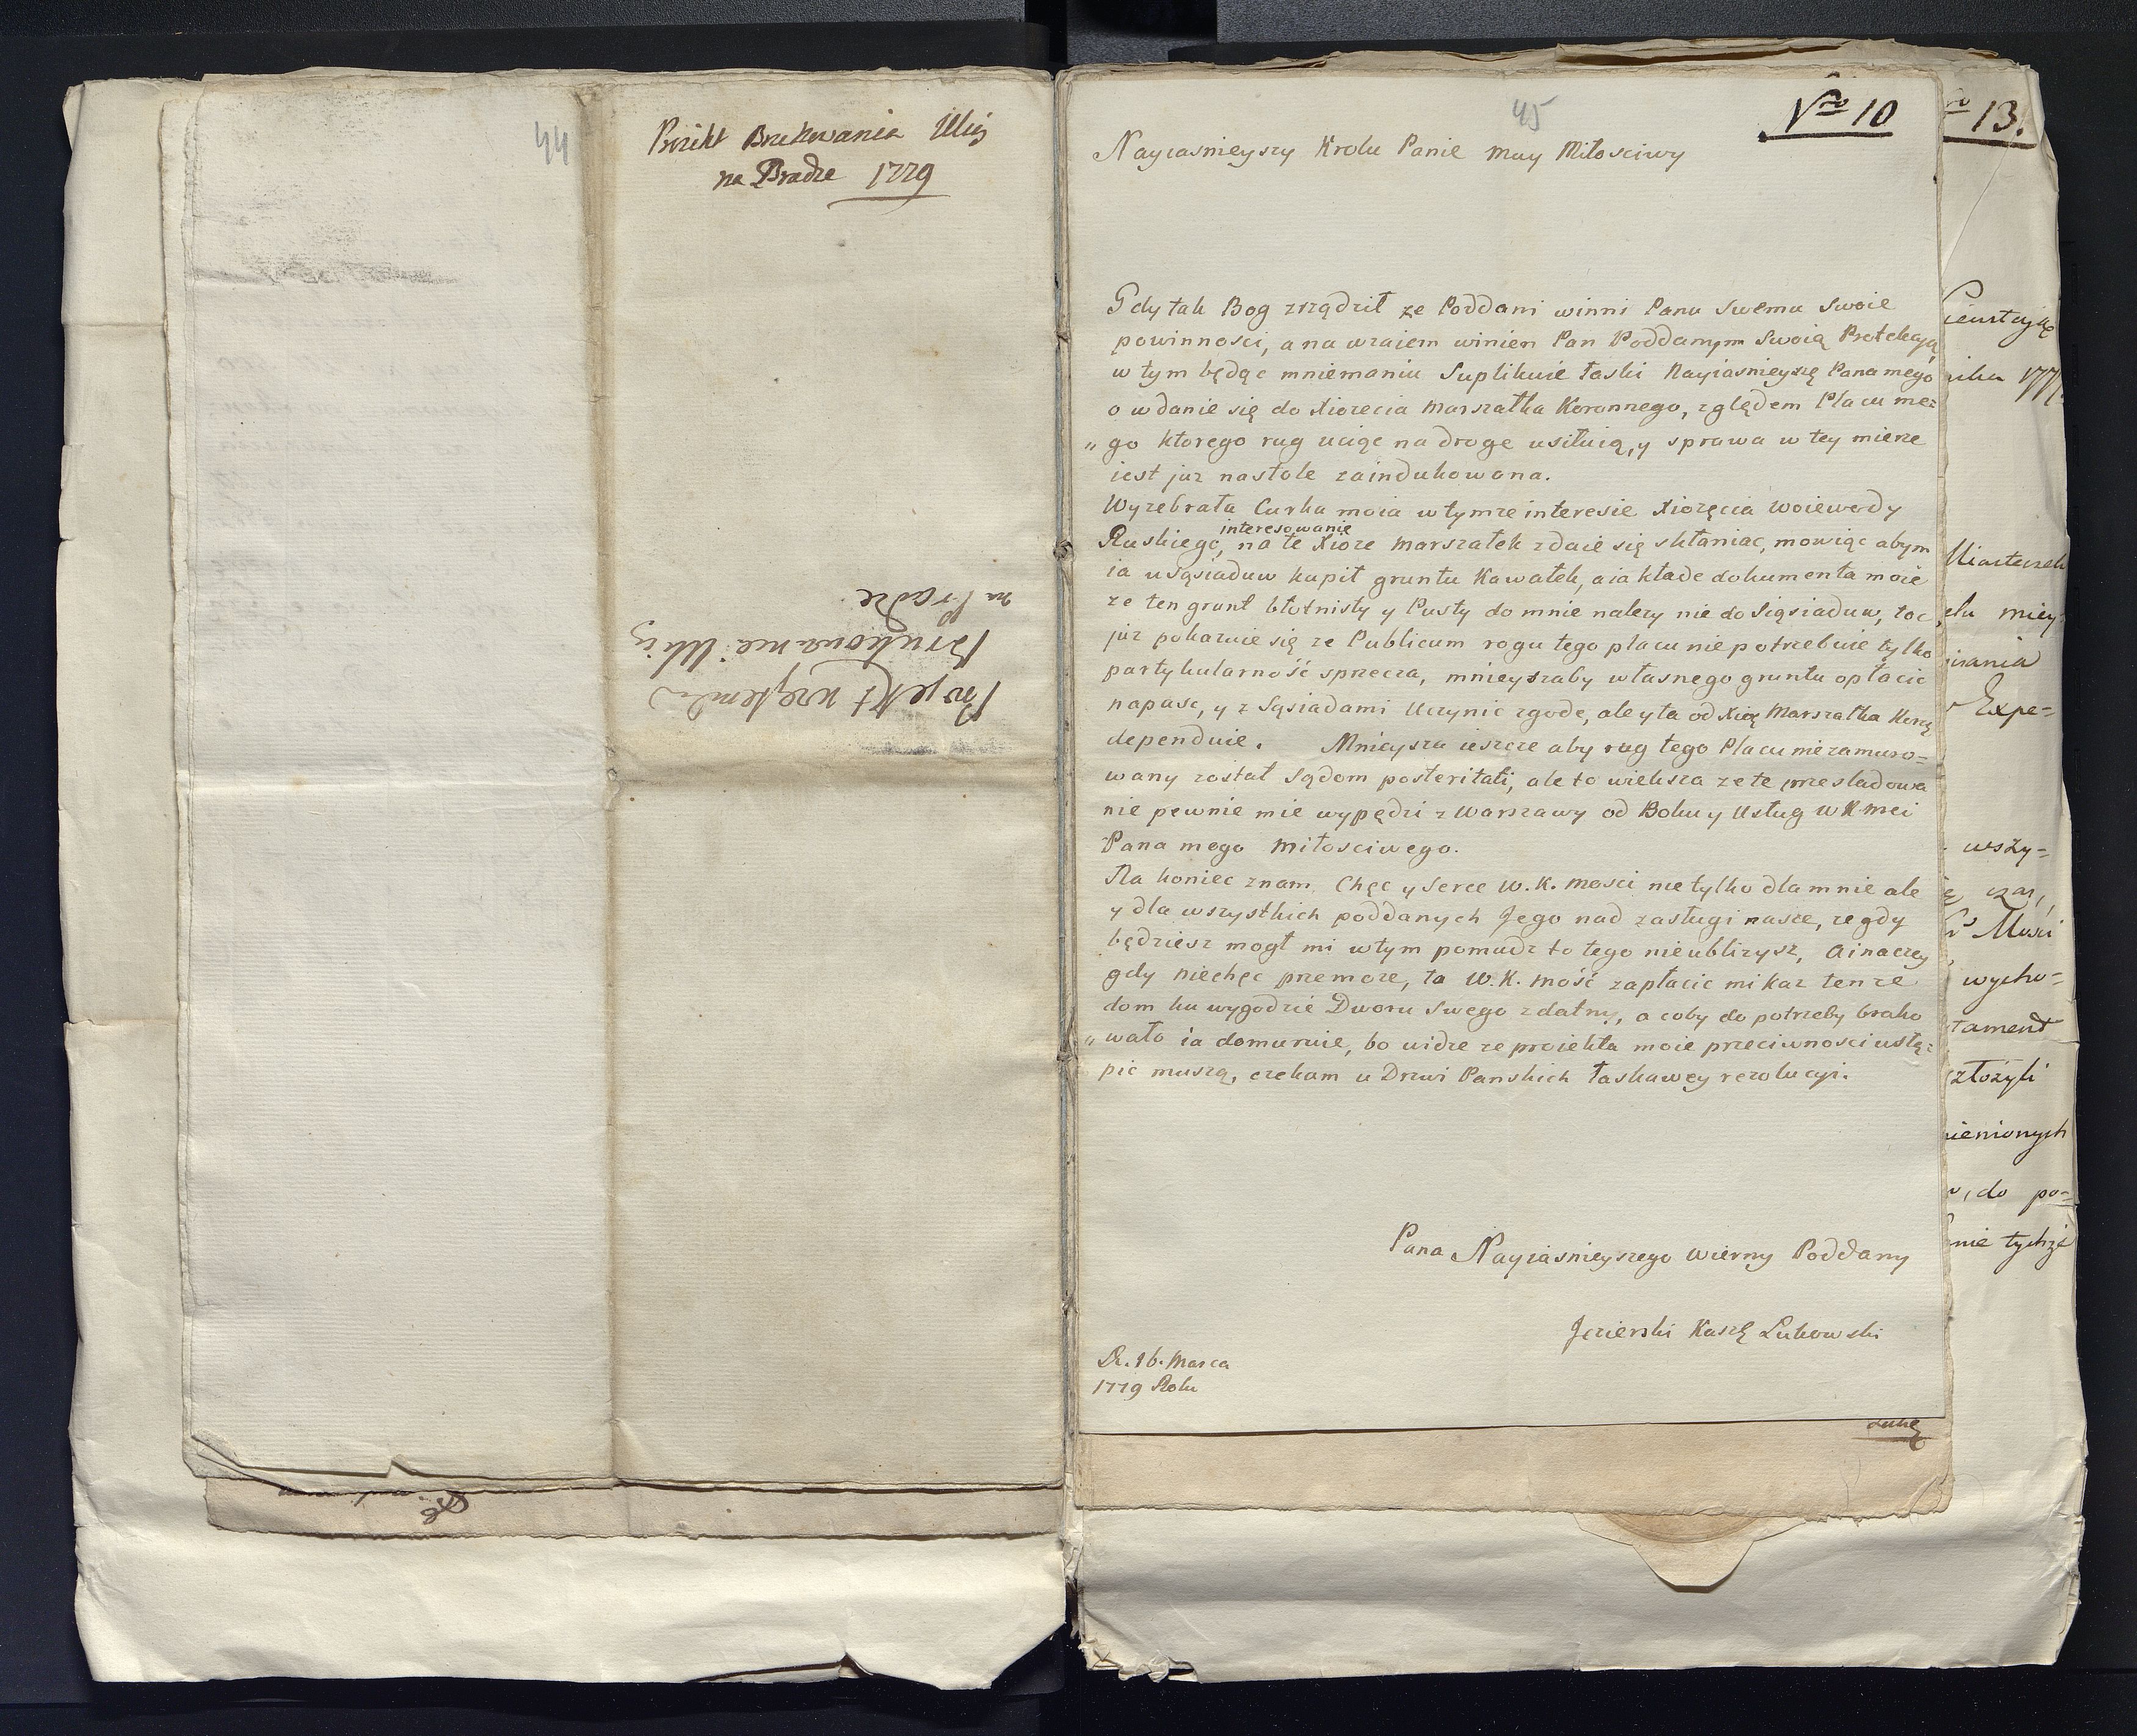 44
Proiekt Brukowania Ulicy
na Pradze 1779
Projekt względem
Brukowania Ulicy
na Pradze
45
Nro 10
Nayiasnieyszy Krolu Panie muy Miłosciwy
Gdy tak Bog zrządził ze Poddani winni Panu Swemu Swoie
powinnosci, a na wzaiem winien Pan Poddanym Swoią Protekcyą
w tym będąc mniemaniu Suplikuie łaski Nayiasnieyszę Pana mego
o wdanie się do Xiozecia Marszałka Koronnego, względem Placu me=
„go ktorego rug uciąc na droge usiłuią, y sprawa w tey mierze
iest juz na stole zaindukowana.
Wyzebrała Curka moia w tymze interesie Xiozęcia Woiewody
Ruskiego, interesowanie na te Xioze Marszałek zdaie się skłaniac, mowiąc abym
ia u sąsiaduw kupił gruntu Kawałek, a ia kłade dokumenta moie
ze ten grunt błotnisty y Pusty do mnie nalezy nie do Sąsiaduw, toc
juz pokazuie się ze Publicum rogu tego placu nie potrzebuie tylko
partykularność sprzecza, mnieyszaby własnego gruntu opłacic
napasc, y z Sąsiadami Uczynic zgode, ale y ta od Xiąę Marszałka Korę
dependuie. Mnieysza ieszcze aby rug tego Placu niezamuro=
wany został Sądom posteritati, ale to wieksza ze te przesladowa
nie pewnie mie wypędzi z Warszawy od Boku y Usług W K mci
Pana mego Miłosciwego.
Na koniec znam Chęc y Serce W. K. Mosci nie tylko dla mnie ale
y dla wszystkich poddanych Jego nad zasługi nasze, ze gdy
będziesz mogł mi w tym pomudz to tego nieublizysz, a inaczey
gdy niechęc przemoze, to W. K. Mość zapłacic mi kaz tenze
dom ku wygodzie Dworu Swego zdatny, a coby do potrzeby brako
„wało ia domuruie, bo widze ze proiekta moie przeciwnosci ustą=
pic muszą, czekam u Drzwi Panskich łaskawey rezolucyi.
Pana Nayiasnieyszego Wierny Poddany
Jezierski Kaszę Łukowski
D. 16. Marca
1779 Roku
13.
1777.
Miasteczek
Expe=
wszy=
Mości
wycho=
tament
złożyli
nienionych
do po=
nie tychże